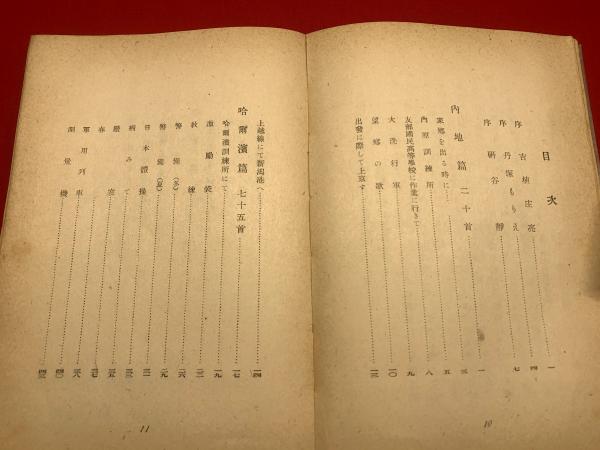 目次
序 吉植庄亮……一
序 丹塚もりえ……四
序 研谷靜……七
內地篇 二十首……一
家鄕を出る時に……三
內原訓練所……五
友部國民高等學校に作業に行きて……八
大洗行軍……九
望鄕の歌……一〇
出發に際して上京す……一三
上越線にて新潟港へ……一四
哈爾濱篇 七十五首……一七
哈爾濱訓練所にて……一九
敎練……二三
警備(冬)……二六
警備(夏)……二九
日本體操……三一
病みて……三三
嚴寒……三五
春……三七
軍用列車……三八
測量機……四〇
10
11